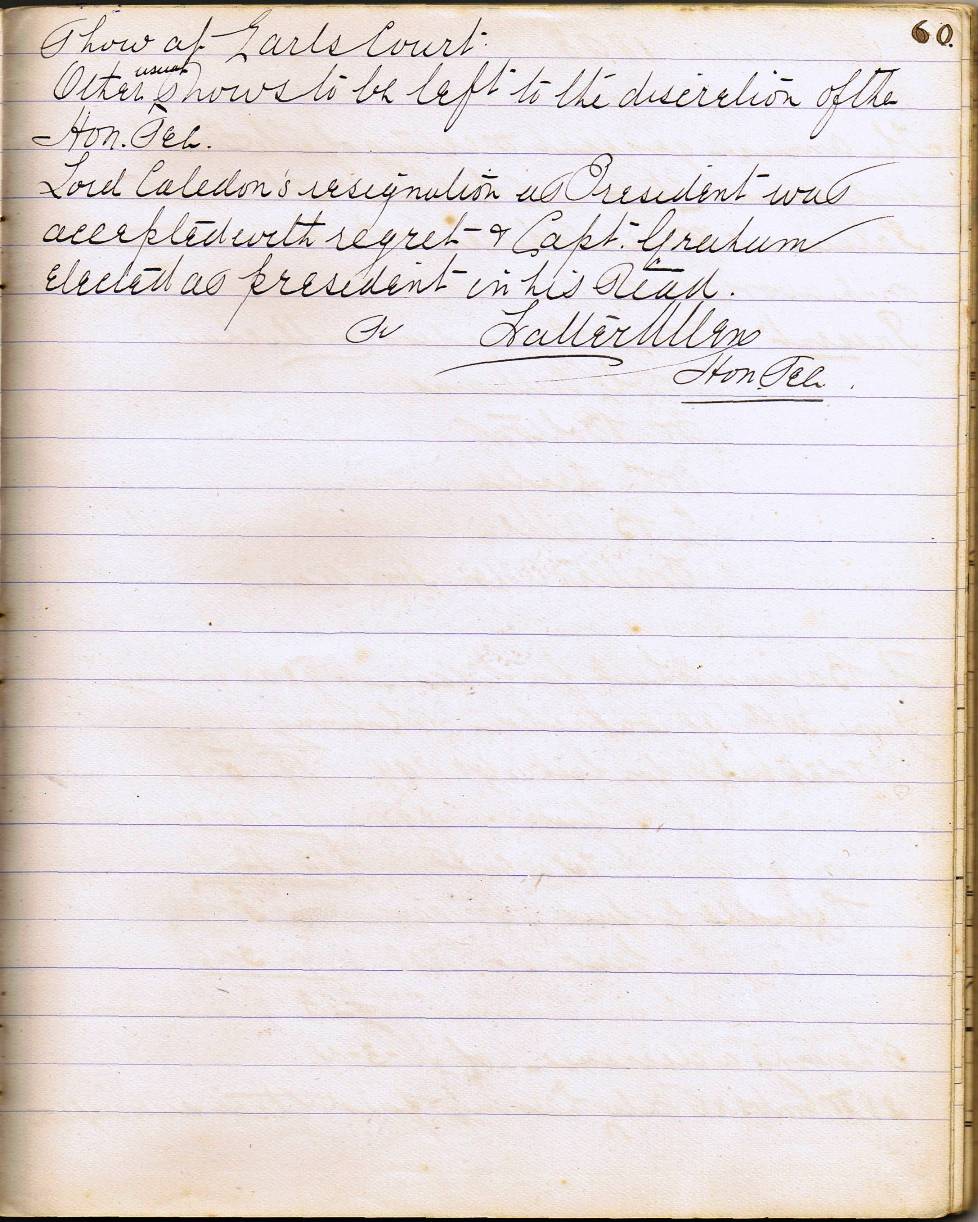 60.
Show at Earls Court.
Other usual Shows to be left to the discretion of the
Hon. Sec.
Lord Caledon's resignation as President was
accepted with regret & Capt. Graham
elected as president in his Stead.
Walter Allen
Hon. Sec.